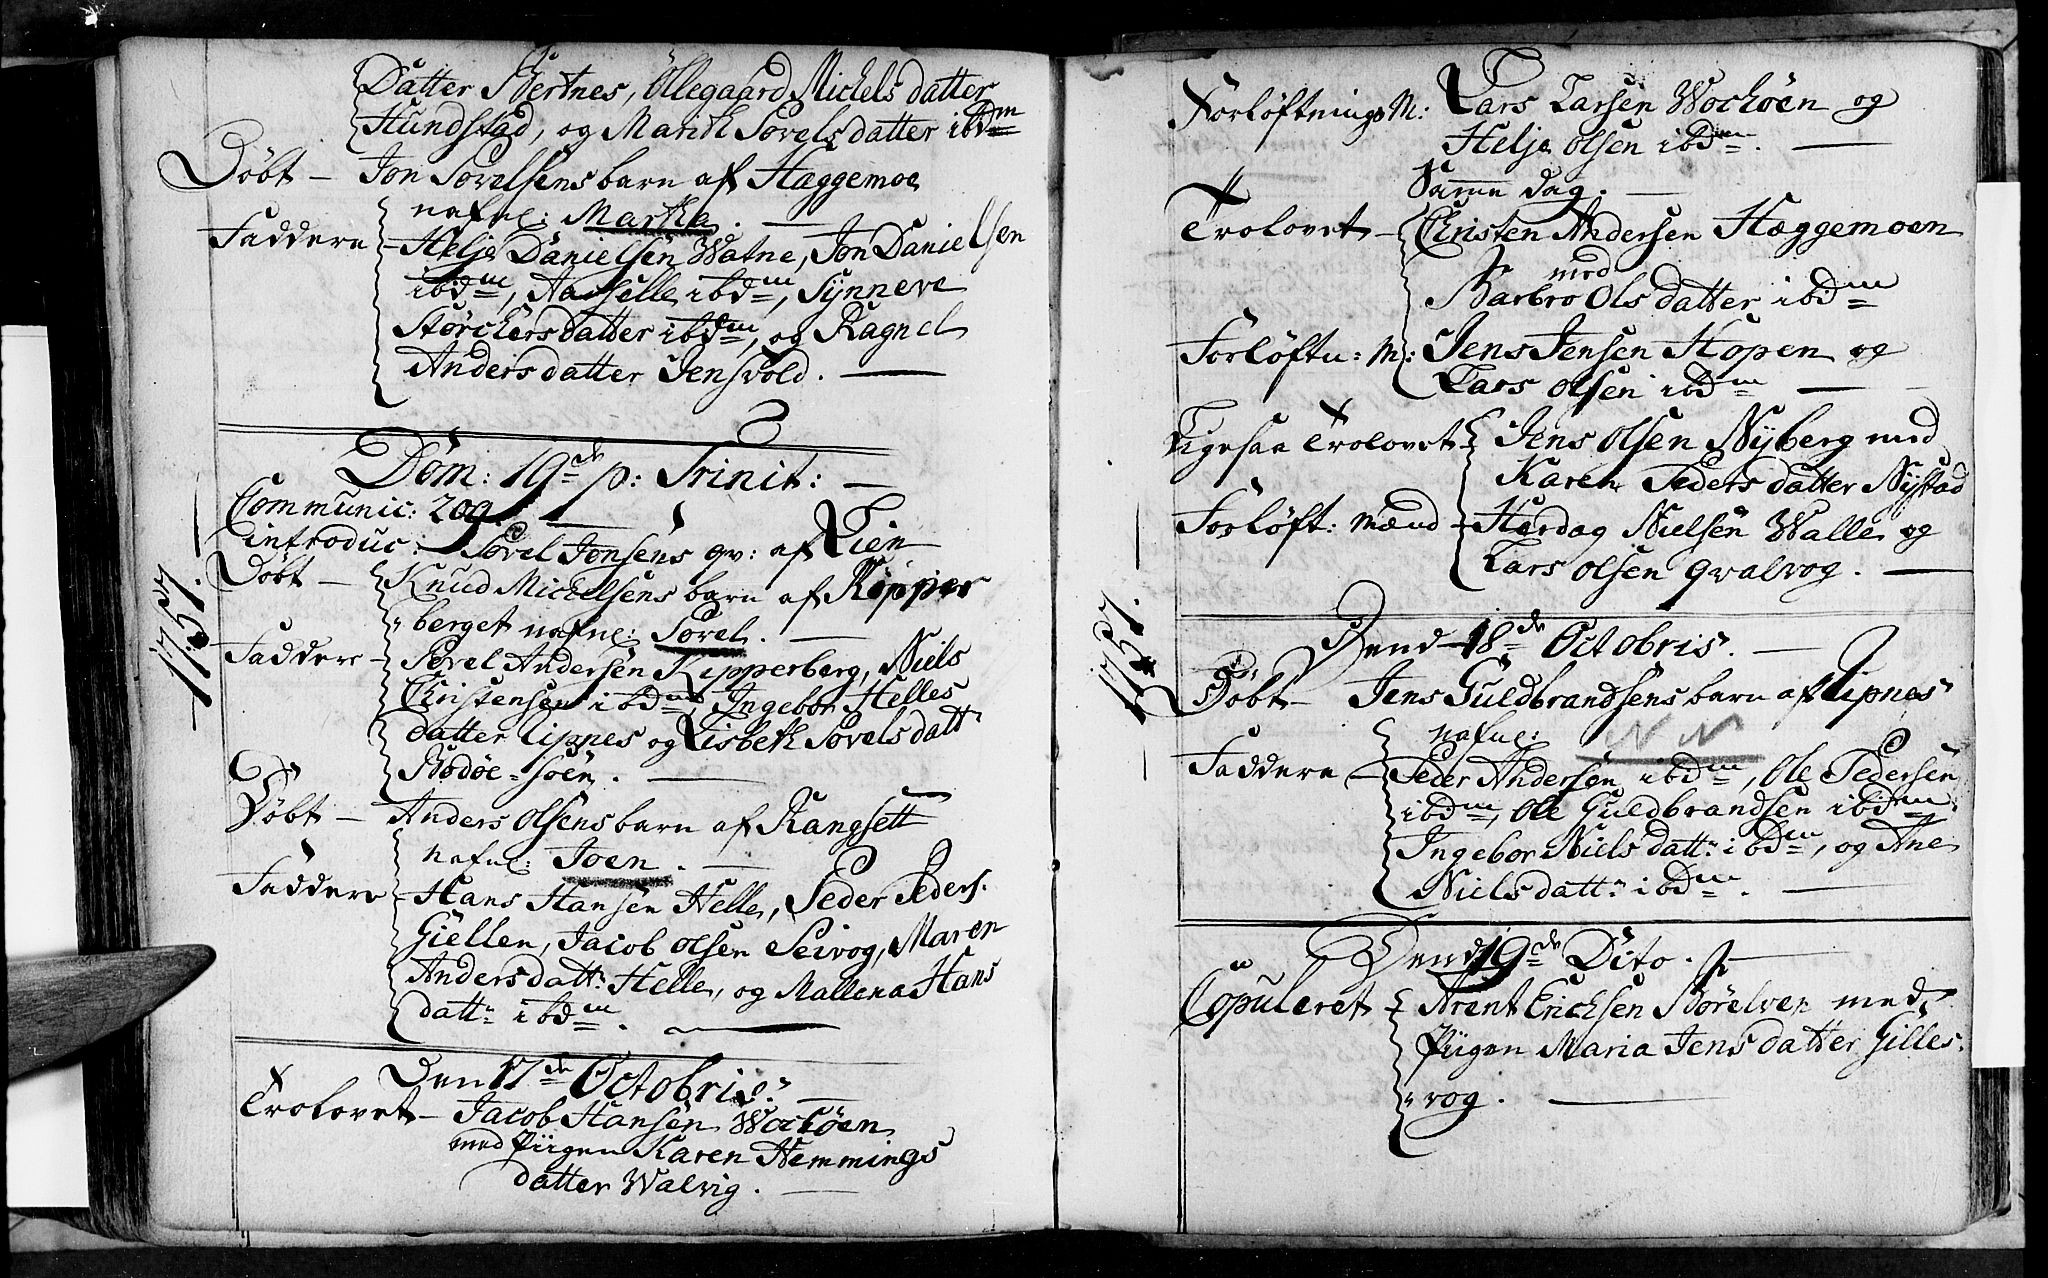 Datter Stertnes, Ollegaard Michels datter
Hundstad, og Marith Sovelsdatter ibd<sup>m</sup>
Döbt – Jon Sovelsens barn af Hæggemoe
nafne: Martha. —
Faddere – Helje Danielsen Watne, Jon Danielsen
ibid<sup>m</sup>, ibd<sup>m</sup>, Synneve
Störchersdatter ibd<sup>m</sup>, og Ragnel
Andersdatter Jensvold. —
1757.
Dom: 19<sup>de</sup> p: Trinit: —
Communic: 209. —
introduc: Sovel Jonsens qv: af Lien
Döbt – Knud Michelsens barn af Kipper
berget nafne: Sovel. —
Faddere – Sovel Andersen Kipperberg, Niels
Christensen ibd<sup>m</sup>, Ingebor Helles
datter Lipnes og Lisbeth Sovelsdatt<sup>r</sup>
Bodöe-söen. —
Döbt – Anders Olsens barn af Rangsett
nafne: Joen. —
Faddere – Hans Hansen Helle, Peder Peders.
Giellen, Jacob Olsen Seivog, Maren
Andersdatt<sup>r</sup>: Helle, og Mallena Hans
datt<sup>r</sup> ibd<sup>m</sup>. —
Den 17<sup>de</sup> Octobris. —
Trolovet – Jacob Hansen Wochöen
med Piigen Karen Hemmings
datter Walvig. —
Forlöftnings M: Lars Larsen Wochöen og
Helje Olsen ibd<sup>m</sup>. —
Samme dag. —
Trolovet – Christen Andersen Hæggemoen
med
Barbro Ols datter ibid<sup>m</sup>
Forlöftn: M: Jens Jensen Hopen og
Lars Olsen ibd<sup>m</sup> —
Ligesaa Trolovet Jens Olsen Nyberg med
Karen Pedersdatter Nystad
Forlöft: mænd – Hardag Nielsen Walle og
Lars Olsen qvalvog. —
1757.
Dend 18<sup>de</sup> Octobris. —
Döbt – Jens Guldbrandsens barn af Lipnes
nafne: N N
Faddere – Peder Andersen ibd<sup>m</sup>, Ole Pedersen
ibd<sup>m</sup>, Ole Guldbrandsen ibd<sup>m</sup>.
Ingebor Niels datt<sup>r</sup> ibd<sup>m</sup>, og Ane
Nielsdatt<sup>r</sup> ibd<sup>m</sup>. —
Dend 19<sup>de</sup> Dito. —
Copuleret – Arent Erichsen Störelven med
Piigen Maria Jens datter Gilles.
vog. —